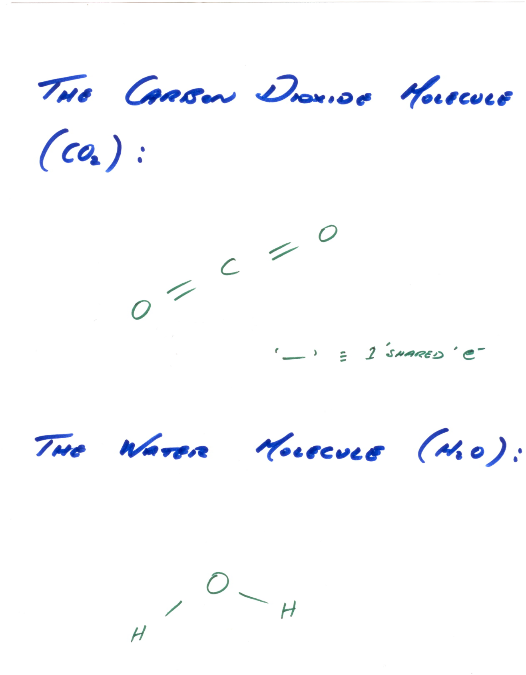 THE CARBON DIOXIDE MOLECULE
(CO₂):
O = C = O
'—' ≡ 1 'SHARED' e⁻
THE WATER MOLECULE (H₂O):
O
H — — H